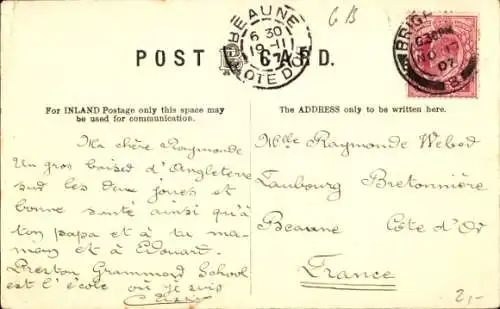 BEAUNE
6 30
19-11
07
COTE D'OR
6 B
BRIGHTON
6 30 PM
NO 17
07
POST CARD.
For INLAND Postage only this space may
be used for communication.
The ADDRESS only to be written here.
Ma chère Raymonde
Un gros baiser d'Angleterre
sur les deux joues et
bonne santé ainsi qu'à
ton papa et à ta ma-
man et à Edouard.
Preston Grammar School
est l'école où je suis
Mlle Raymonde
Faubourg Bretonnière
Beaune Côte d'Or
France
2,-